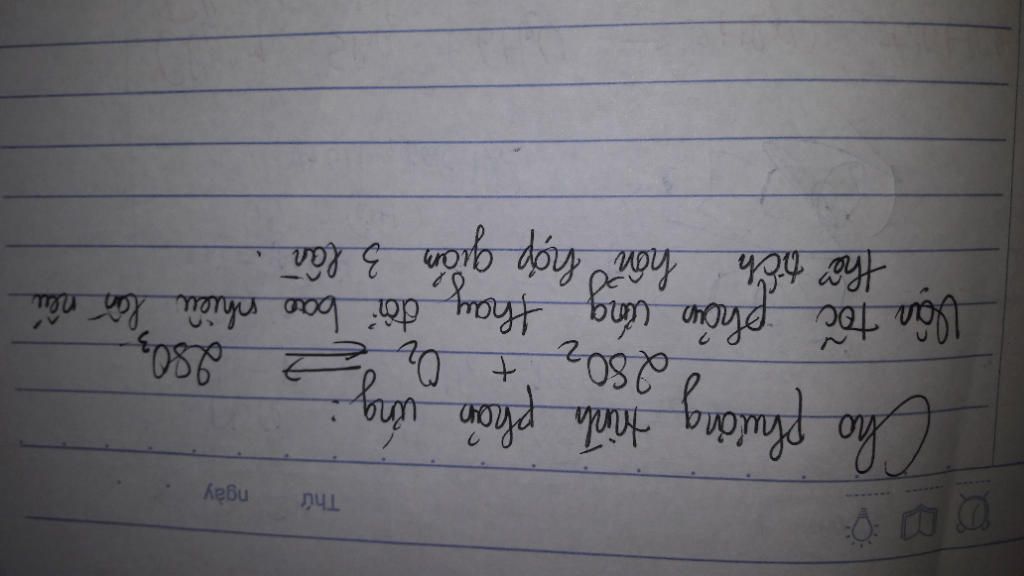 Thứ ngày
Cho phương trình phản ứng:
2SO₂ + O₂ ⇌ 2SO₃
Vận tốc phản ứng thay đổi bao nhiêu lần nếu
thể tích hỗn hợp giảm 3 lần.